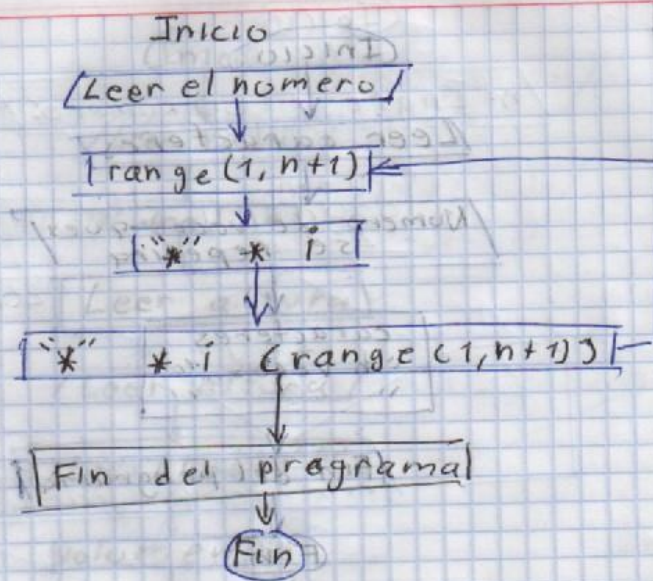 Inicio
Leer el nomero
range (1, n+1)
"*" * i
"*" * i (range (1, n+1))
Fin del programa
Fin